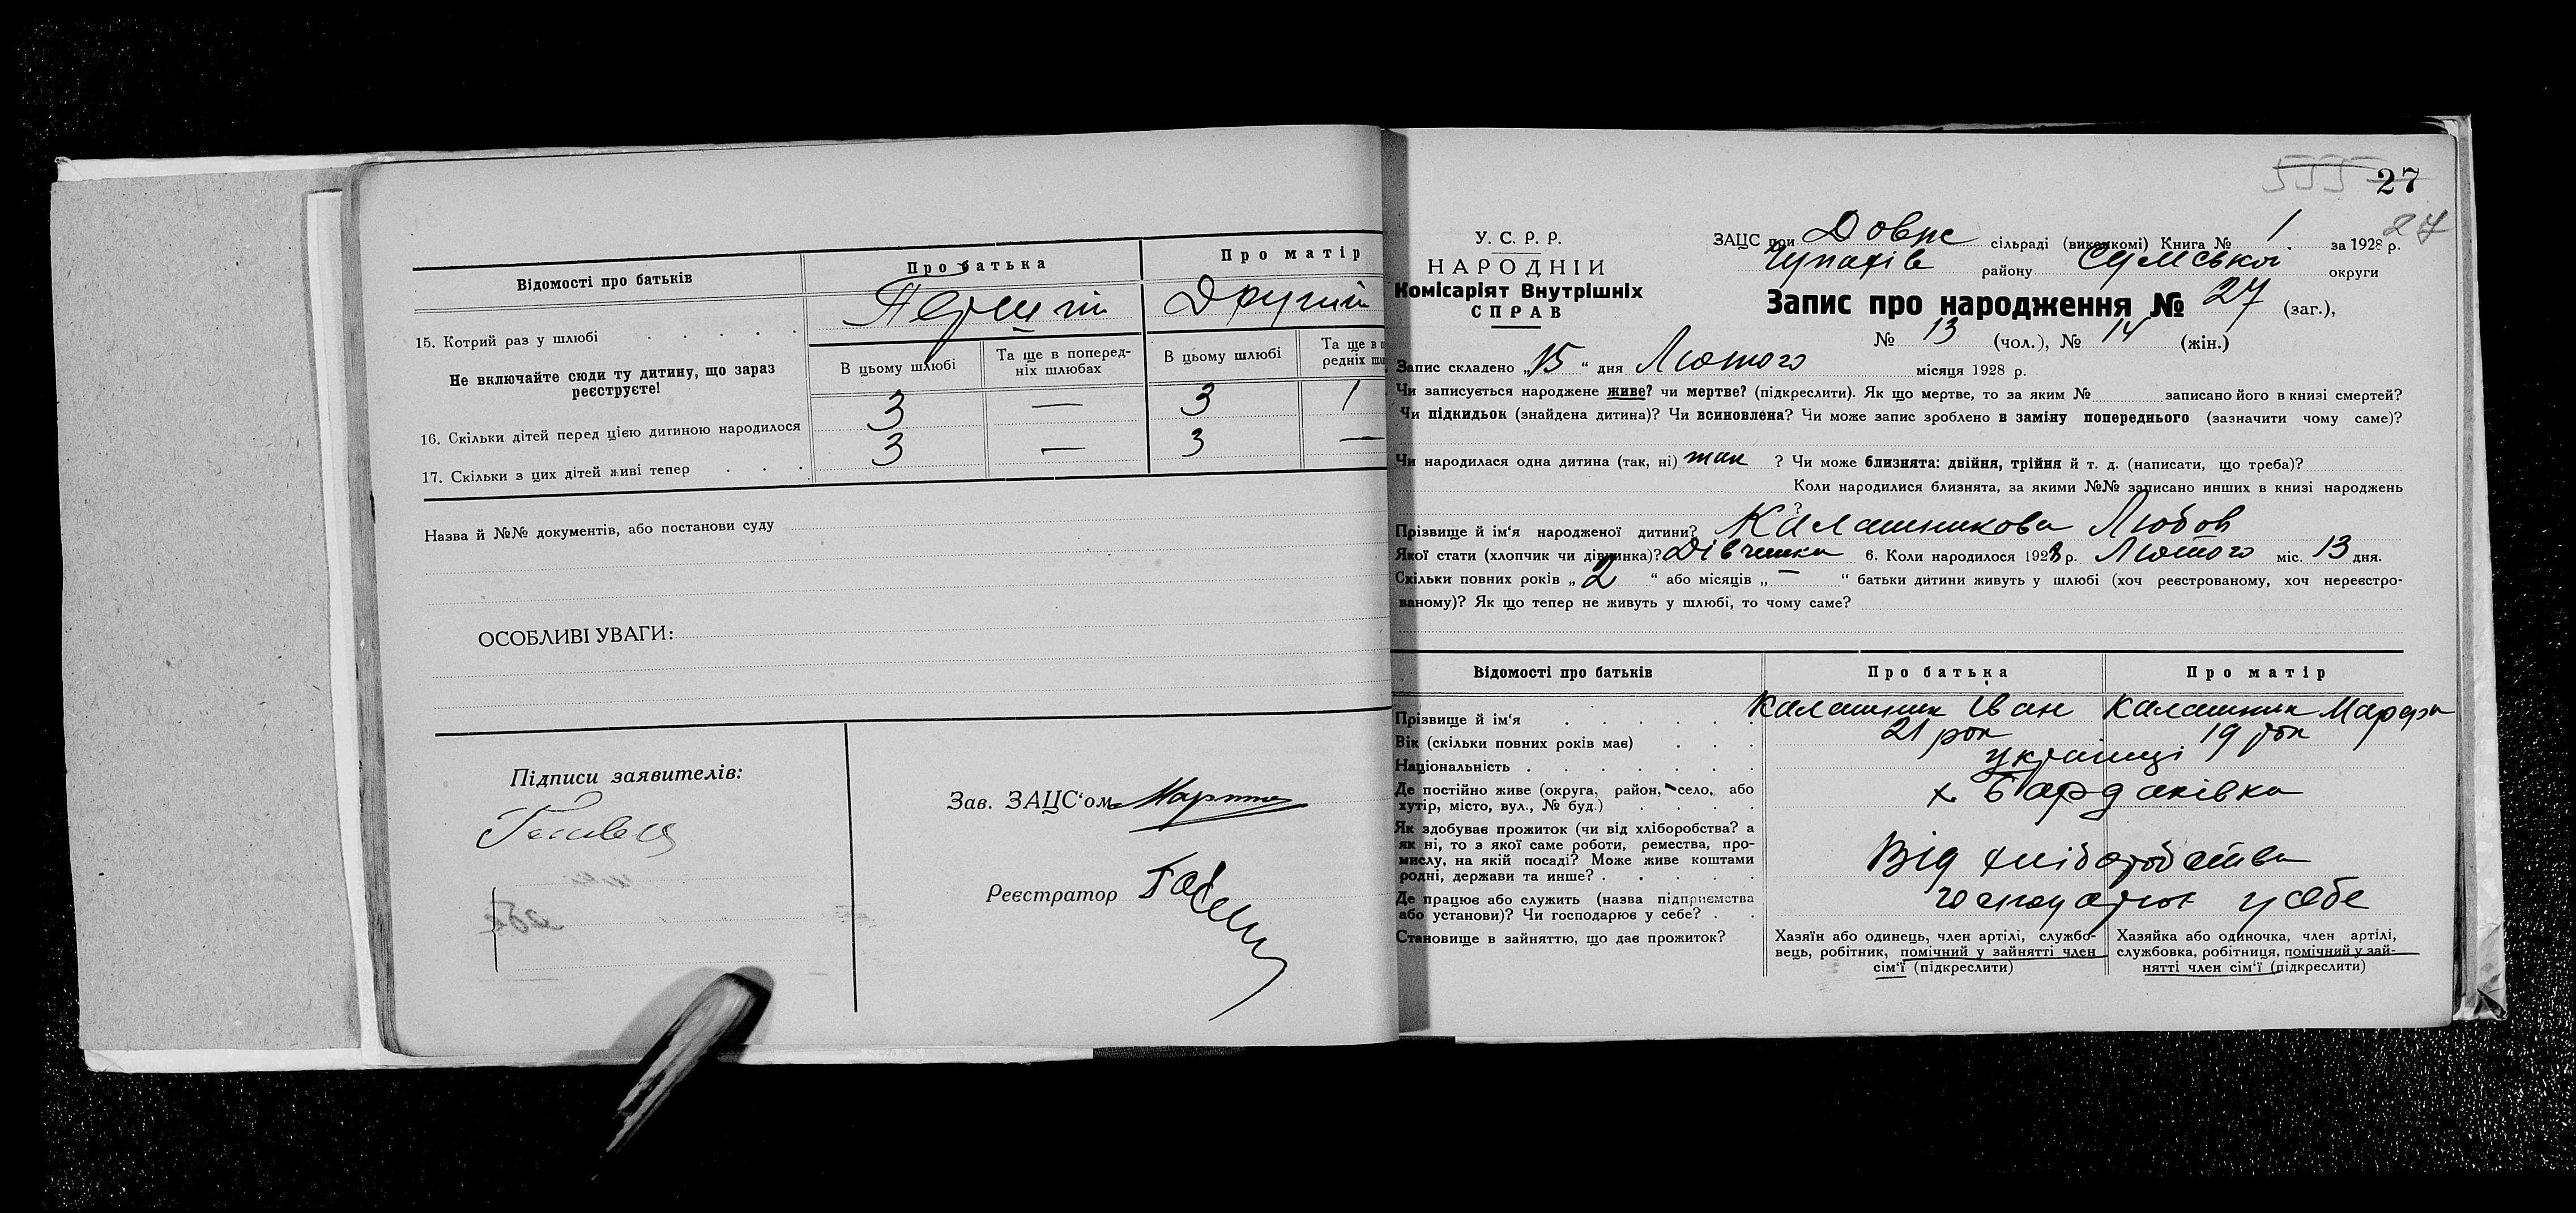 Відомості про батьків
Про батька
Про матір
15. Котрий раз у шлюбі . . . .
Перший
Другий
Не включайте сюди ту дитину, що зараз
реєструєте!
В цьому шлюбі
Та ще в поперед-
ніх шлюбах
В цьому шлюбі
Та ще в п
редніх шл
16. Скільки дітей перед цією дитиною народилося
3 — 3 1
17. Скільки з цих дітей живі тепер . . .
3 — 3 —
Назва й №№ документів, або постанови суду
ОСОБЛИВІ УВАГИ:
Підписи заявителів:
Зав. ЗАЦС'ом
Реєстратор
555 27
27
У. С. Р. Р.
НАРОДНІЙ
Комісаріят Внутрішніх
СПРАВ
ЗАЦС при Довже сільраді (виконкомі) Книга № 1 за 1928 р.
Чупахів району Сумської округи
Запис про народження № 27 (заг.),
№ 13 (чол.), № 14 (жін.)
Запис складено „15“ дня Лютого місяця 1928 р.
Чи записується народжене живе? чи мертве? (підкреслити). Як що мертве, то за яким № записано його в книзі смертей?
Чи підкидьок (знайдена дитина)? Чи всиновлена? Чи може запис зроблено в заміну попереднього (зазначити чому саме)?
Чи народилася одна дитина (так, ні) так ? Чи може близнята: двійня, трійня й т. д. (написати, що треба)?
Коли народилися близнята, за якими №№ записано инших в книзі народжень
?
Прізвище й ім'я народженої дитини? Калашникова Любов
Якої стати (хлопчик чи дівчинка)? Дівчинка 6. Коли народилося 1928 р. Лютого міс. 13 дня.
Скільки повних років „2“ або місяців „—“ батьки дитини живуть у шлюбі (хоч реєстрованому, хоч нереєстро-
ваному)? Як що тепер не живуть у шлюбі, то чому саме?
Відомості про батьків
Про батька
Про матір
Прізвище й ім'я . . . . .
Калашник Іван
Калашник Марфа
Вік (скільки повних років має) . . .
21 рок
19 рок
Національність . . . . . . .
українці
Де постійно живе (округа, район, село, або
хутір, місто, вул., № буд.) . . . .
х. Бардаківка
Як здобуває прожиток (чи від хліборобства? а
як ні, то з якої саме роботи, ремества, про-
мислу, на якій посаді? Може живе коштами
родні, держави та инше? . . . . .
Від хліборобства
Де працює або служить (назва підприємства
або установи)? Чи господарює у себе? . .
господарює у себе
Становище в зайняттю, що дає прожиток?
Хазяїн або одинець, член артілі, службо-
вець, робітник, помічний у зайнятті член
сім'ї (підкреслити)
Хазяйка або одиночка, член артілі,
службовка, робітниця, помічний у зай-
нятті член сім'ї (підкреслити)